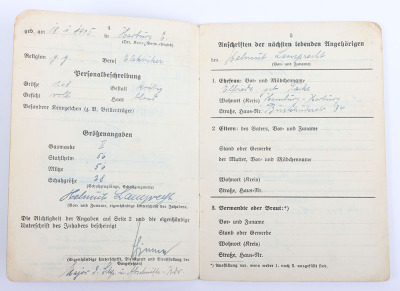 geb. am in Harburg E.
(Ort, Kreis, Verw.-Bezirk)
Religion g.g. Beruf
Personalbeschreibung
Größe Gestalt
Gesicht voll Haar blond
Besondere Kennzeichen (z. B. Brillenträger)
Größenangaben
Gasmaske 2
Stahlhelm 56
Mütze 56
Schuhgröße 28
Helmut Lamprecht
(Vor- und Zuname, eigenhändige Unterschrift des Inhabers)
Die Richtigkeit der Angaben auf Seite 2 und die eigenhändige
Unterschrift des Inhabers bescheinigt
(Eigenhändige Unterschrift, Dienstgrad und Dienststellung des
Major d.
5
Anschriften der nächsten lebenden Angehörigen
des Helmut Lamprecht
(Vor- und Zuname)
1. Ehefrau: Vor- und Mädchenname
geb.
Wohnort (Kreis) Hamburg-Harburg
Straße, Haus-Nr.
2. Eltern: des Vaters, Vor- und Zuname
Stand oder Gewerbe
der Mutter, Vor- und Mädchenname
Wohnort (Kreis)
Straße, Haus-Nr.
3. Verwandte oder Braut:*)
Vor- und Zuname
Stand oder Gewerbe
Wohnort (Kreis)
Straße, Haus-Nr.
*) Ausfüllung nur, wenn weder 1. noch 2. ausgefüllt sind.